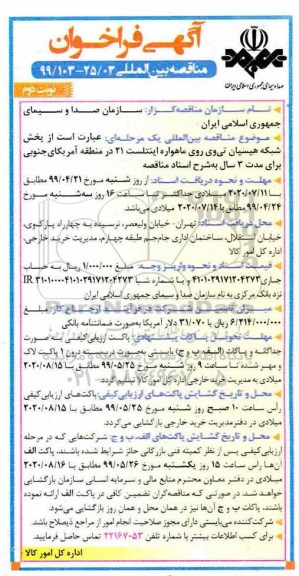 آگهی فراخوان
مناقصه بین‌المللی ۲۵/۰۳-۹۹/۱۰۳
نوبت دوم
صدا و سیمای جمهوری اسلامی ایران
نام سازمان مناقصه‌گزار: سازمان صدا و سیمای
جمهوری اسلامی ایران
موضوع مناقصه بین‌المللی یک مرحله‌ای: عبارت است از پخش
شبکه هیسپان تی‌وی روی ماهواره اینتلست ۲۱ در منطقه آمریکای‌جنوبی
برای مدت ۳ سال به‌شرح اسناد مناقصه
مهلت و نحوه دریافت اسناد: از روز شنبه مورخ ۹۹/۰۴/۲۱ مطابق
با ۲۰۲۰/۰۷/۱۱ میلادی حداکثر تا ساعت ۱۶ روز سه‌شنبه مورخ
۹۹/۰۴/۲۴ مطابق با ۲۰۲۰/۰۷/۱۴ میلادی می‌باشد
محل دریافت اسناد: تهران- خیابان ولیعصر، نرسیده به چهارراه پارک‌وی،
خیابان استقلال، ساختمان اداری جام‌جم طبقه چهارم، مدیریت خرید خارجی،
اداره کل امور کالا
قیمت اسناد و نحوه واریز وجه: مبلغ ۱/۰۰۰/۰۰۰ ریال به حساب
جاری ۴۱۰۱۰۲۹۱۷۱۲۰۴۲۷۳ و یا شماره شبا
نزد بانک مرکزی به نام سازمان صدا و سیمای جمهوری اسلامی ایران
۶/۲۱۴/۰۰۰/۰۰۰ ریال یا ۳۱/۰۷۰ دلار آمریکا به‌صورت ضمانتنامه بانکی
پاکت ارزیابی‌کیفی به صورت
جداگانه و پاکات (الف، ب و ج) بایستی به صورت دربسته درون ۱ پاکت لاک
و مهر شده تا ساعت ۹ روز شنبه مورخ ۹۹/۰۵/۲۵ مطابق با ۲۰۲۰/۰۸/۱۵
میلادی به مدیریت خرید خارجی اداره کل امور کالا
محل و تاریخ گشایش پاکت‌های ارزیابی‌کیفی: پاکت‌های ارزیابی‌کیفی
رأس ساعت ۱۰ صبح روز شنبه مورخ ۹۹/۰۵/۲۵ مطابق با ۲۰۲۰/۰۸/۱۵
میلادی در دفتر مدیریت خرید خارجی بازگشایی می‌گردد.
محل و تاریخ گشایش پاکت‌های الف، ب و ج: شرکت‌هایی که در مرحله
ارزیابی‌کیفی پس از نظر کمیته فنی بازرگانی حائز شرایط شده باشند، پاکت الف
آن‌ها راس ساعت ۱۵ روز یکشنبه مورخ ۹۹/۰۵/۲۶ مطابق با ۲۰۲۰/۰۸/۱۶
میلادی در دفتر معاون محترم منابع مالی و سرمایه انسانی سازمان بازگشایی
خواهد شد. در صورتی که مناقصه‌گران تضمین کافی در پاکت الف ارائه نموده
باشند، پاکات ب و ج آن‌ها نیز در همان محل و همان روز بازگشایی می‌شود.
شرکت‌کننده می‌بایستی دارای مجوز صلاحیت انجام امور از مراجع ذیصلاح باشد.
برای کسب اطلاعات بیشتر با شماره تلفن ۲۲۱۶۷۰۵۳ تماس حاصل فرمایید.
اداره کل امور کالا